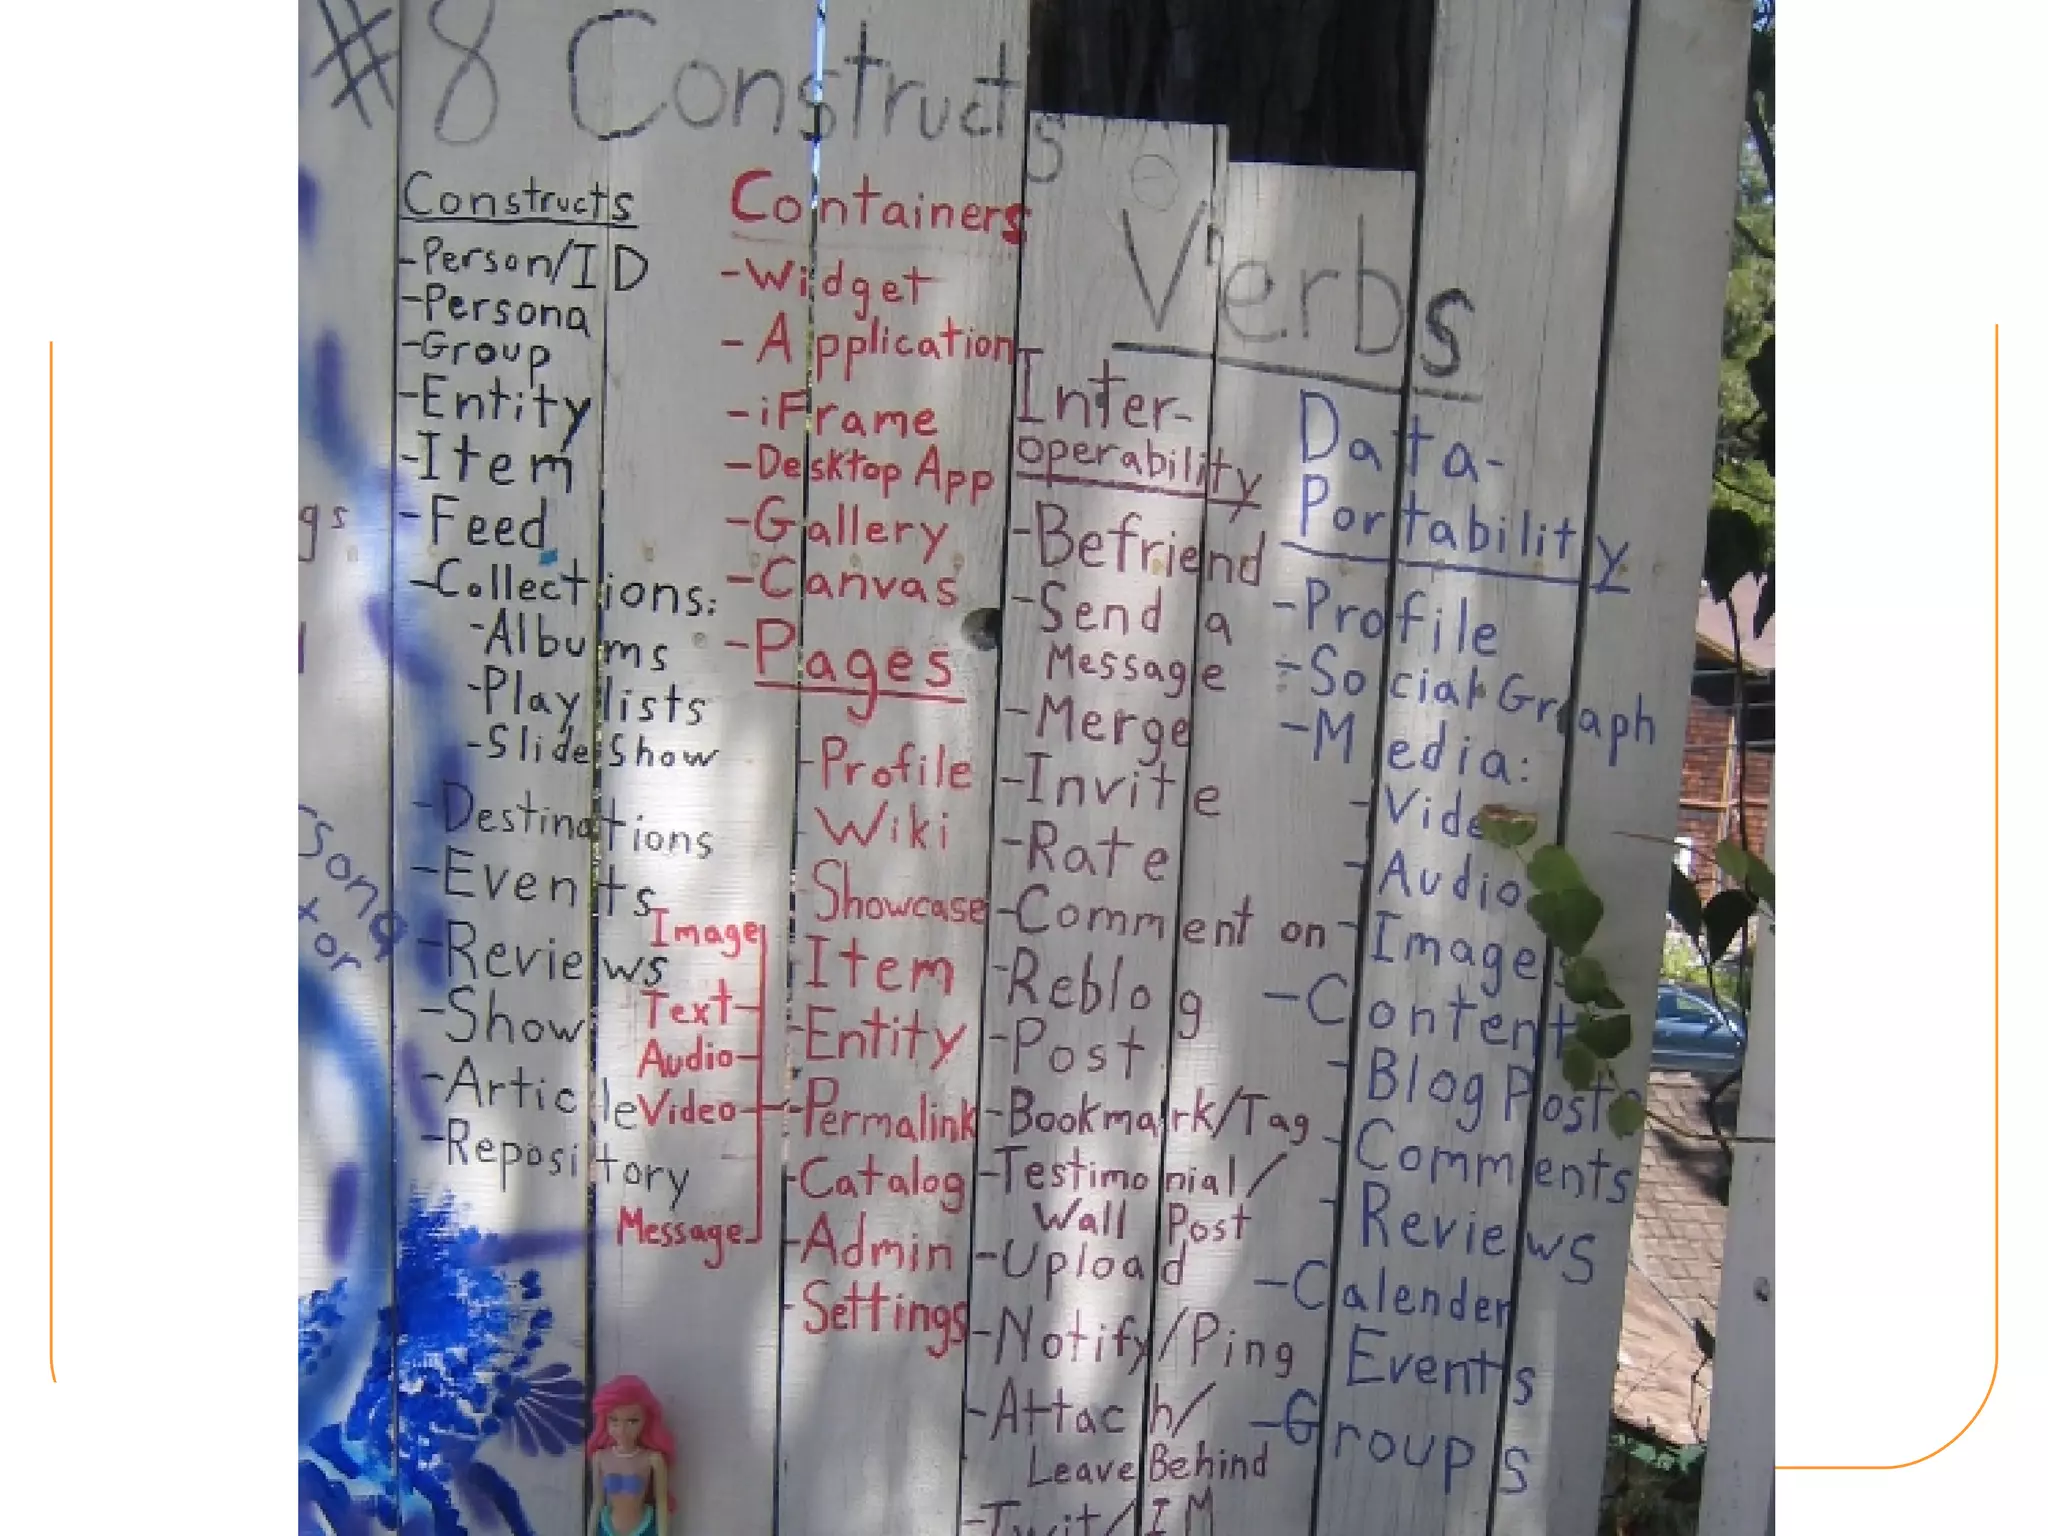 #8 Constructs
Constructs
-Person/ID
-Persona
-Group
-Entity
-Item
-Feed
-Collections:
-Albums
-Playlists
-SlideShow
-Destinations
-Events
-Reviews
-Show
-Article
-Repository
Containers
-Widget
-Application
-iFrame
-Desktop App
-Gallery
-Canvas
-Pages
-Profile
Wiki
Showcase
Item
-Entity
-Permalink
-Catalog
-Admin
-Settings
Image
Text-
Audio-
Video-
Message
Verbs
Inter-
operability
-Befriend
-Send a
Message
-Merge
-Invite
-Rate
-Comment on
-Reblog
-Post
-Bookmark/Tag
-Testimonial/
Wall Post
-Upload
-Notify/Ping
-Attach/
Leave Behind
-Twit/IM
Data-
Portability
-Profile
-Social Graph
-Media:
-Video
-Audio
-Images
-Content
-Blog Posts
-Comments
-Reviews
-Calender
Events
-Groups
gs